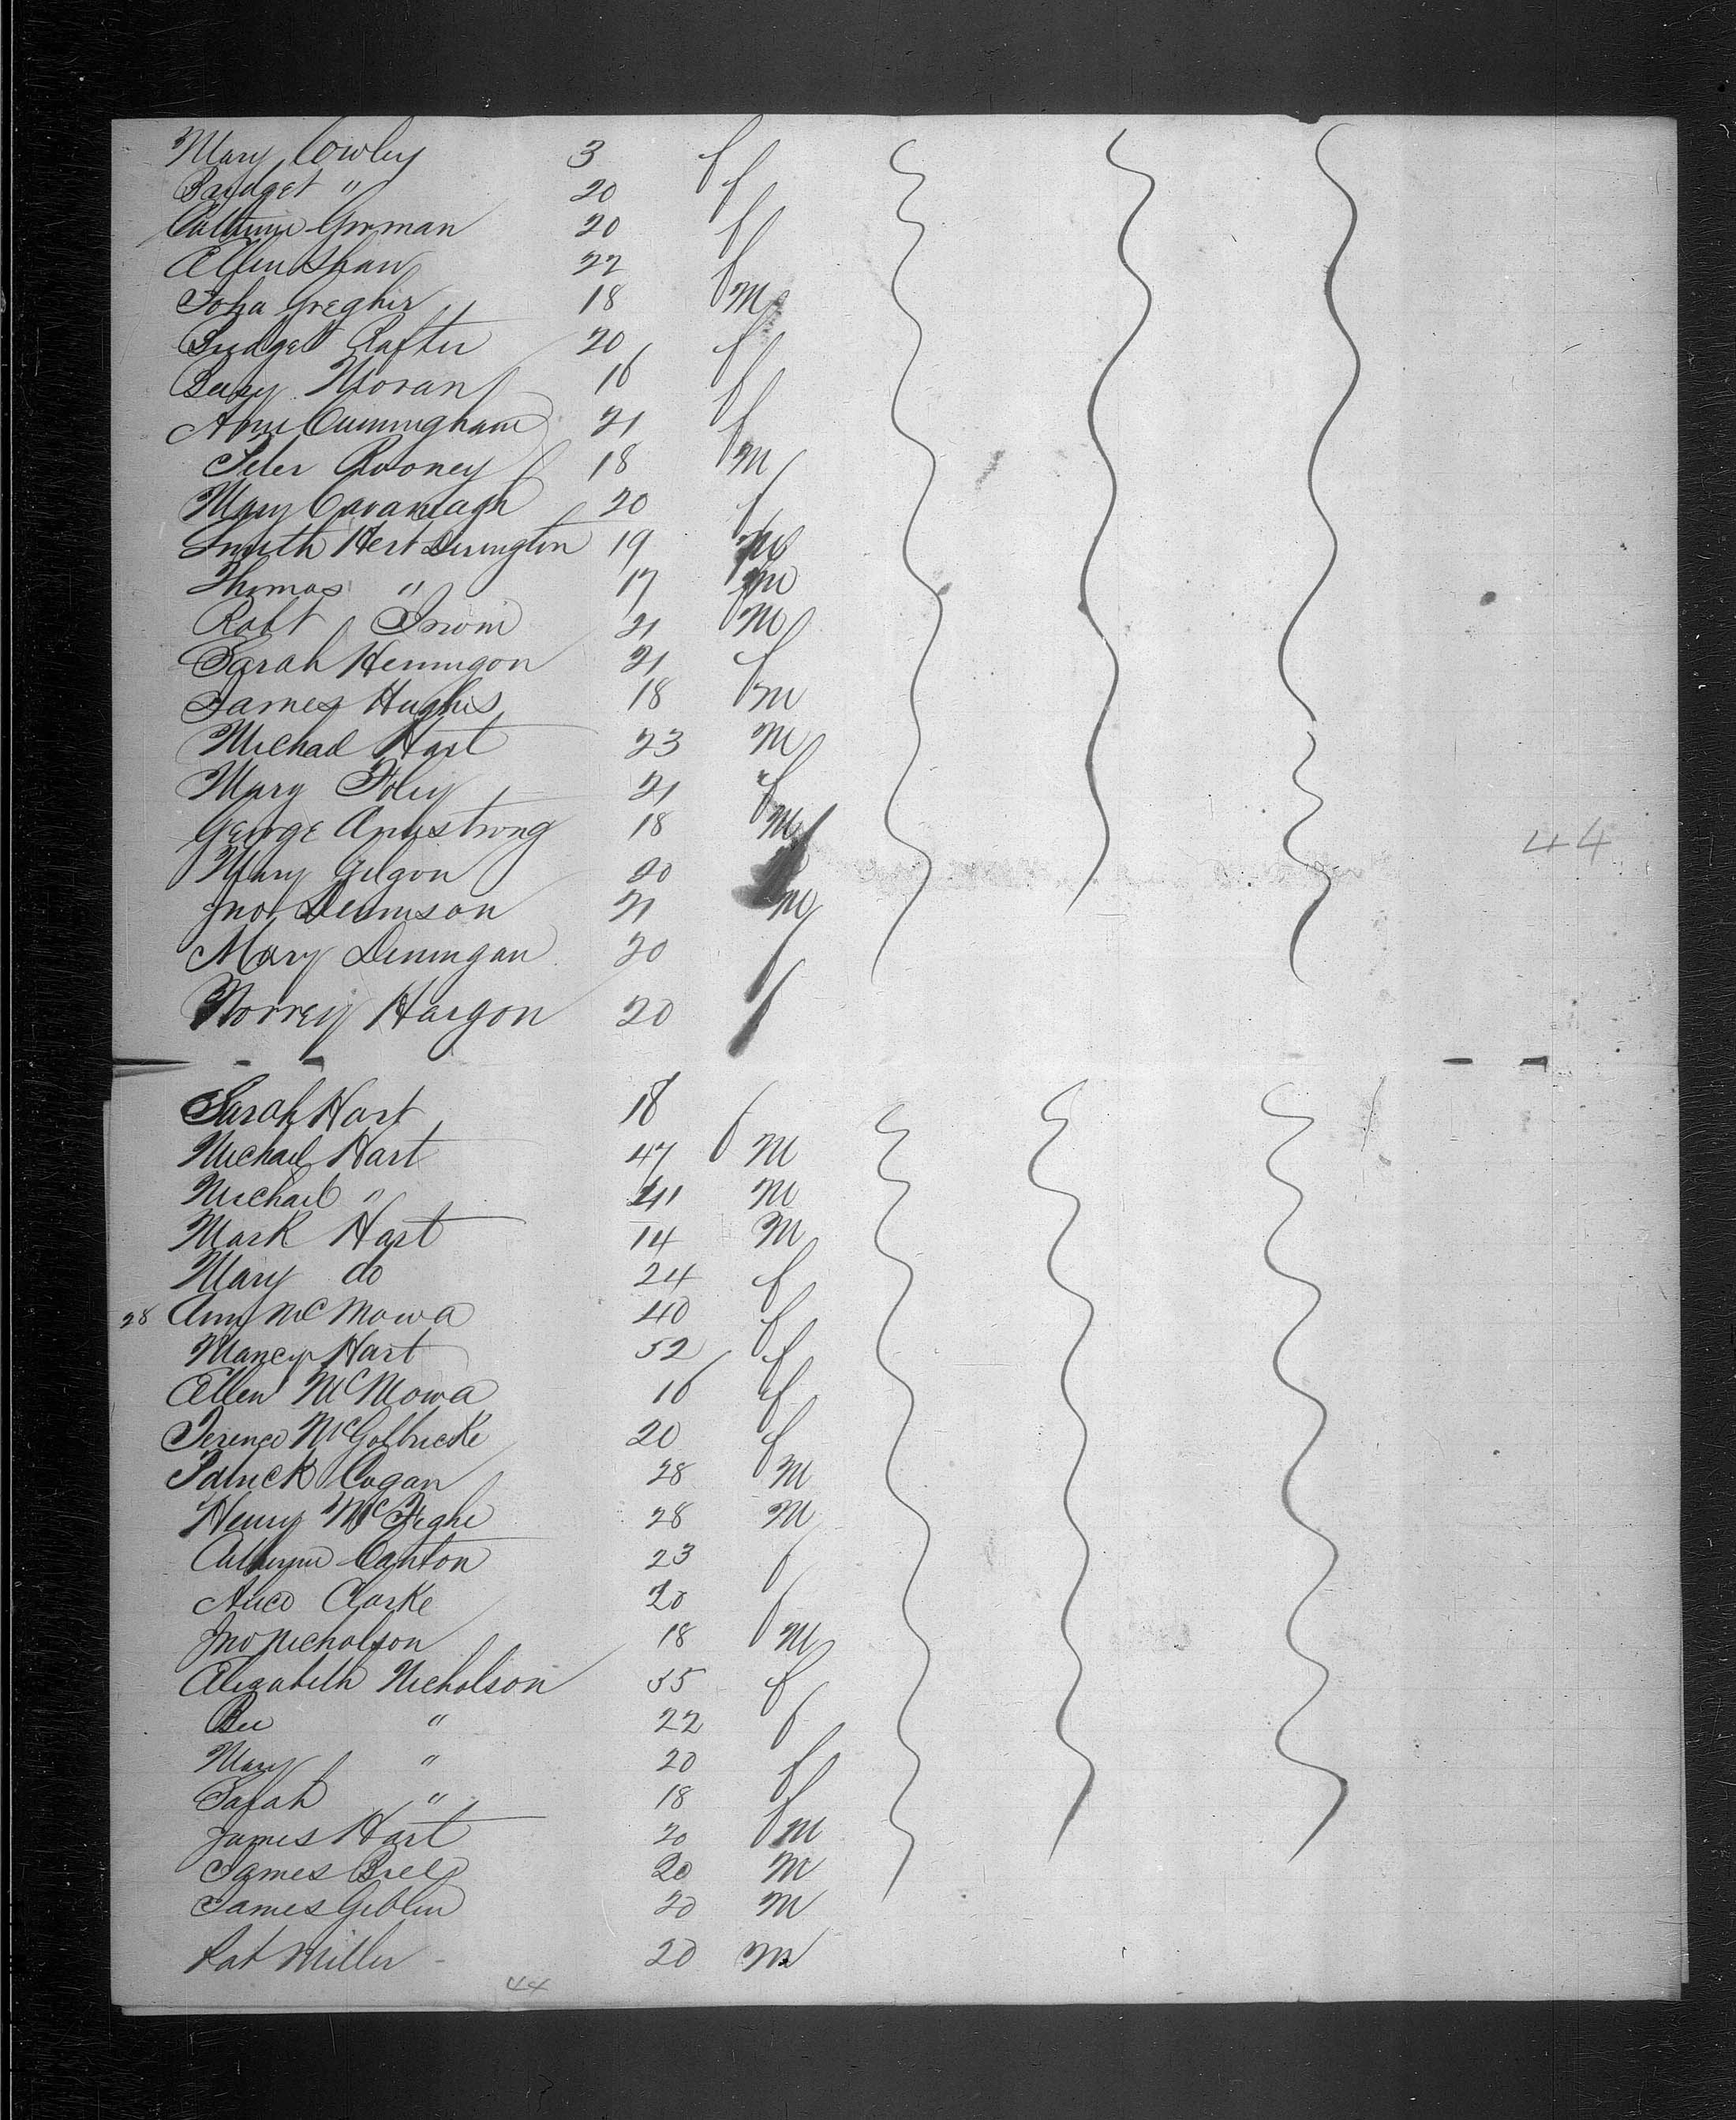 Mary Cowley 3 f
Bridget " 20 f
Catherine Gorman 20 f
Ellen Shaw 22 f
John 18 M
Bridget Rafter 20 f
Moran 16 f
Ann Cunningham 21 f
Peter Rooney 18 M
Mary Cavanagh 20 f
Smith 19 M
Thomas " 17 M
Robt Irwin 21 M
Sarah Hennigon 21 f
James Hughes 18 M
Michael Hart 23 M
Mary Foley 21 f
George Armstrong 18 M
Mary Gilgon 20
Jno Dennison 21 M
44
Mary Dennigan 20 f
Hargon 20 f
Sarah Hart 18 f
Michael Hart 47 M
Michael " 41 M
Mark Hart 14 M
Mary do 24 f
28 Ann McMowa 40 f
Nancy Hart 52 f
Ellen McMowa 16 f
Terence 20 f
Patrick Cogan 28 M
Henry 28 M
Catherine Canton 23 f
Clarke 20 f
Jno Nicholson 18 M
Elizabeth Nicholson 55 f
Bee " 22 f
Mary " 20 f
Sarah " 18 f
James Hart 20 M
James 20 M
James Giblin 20 M
Pat Miller 20 M
44